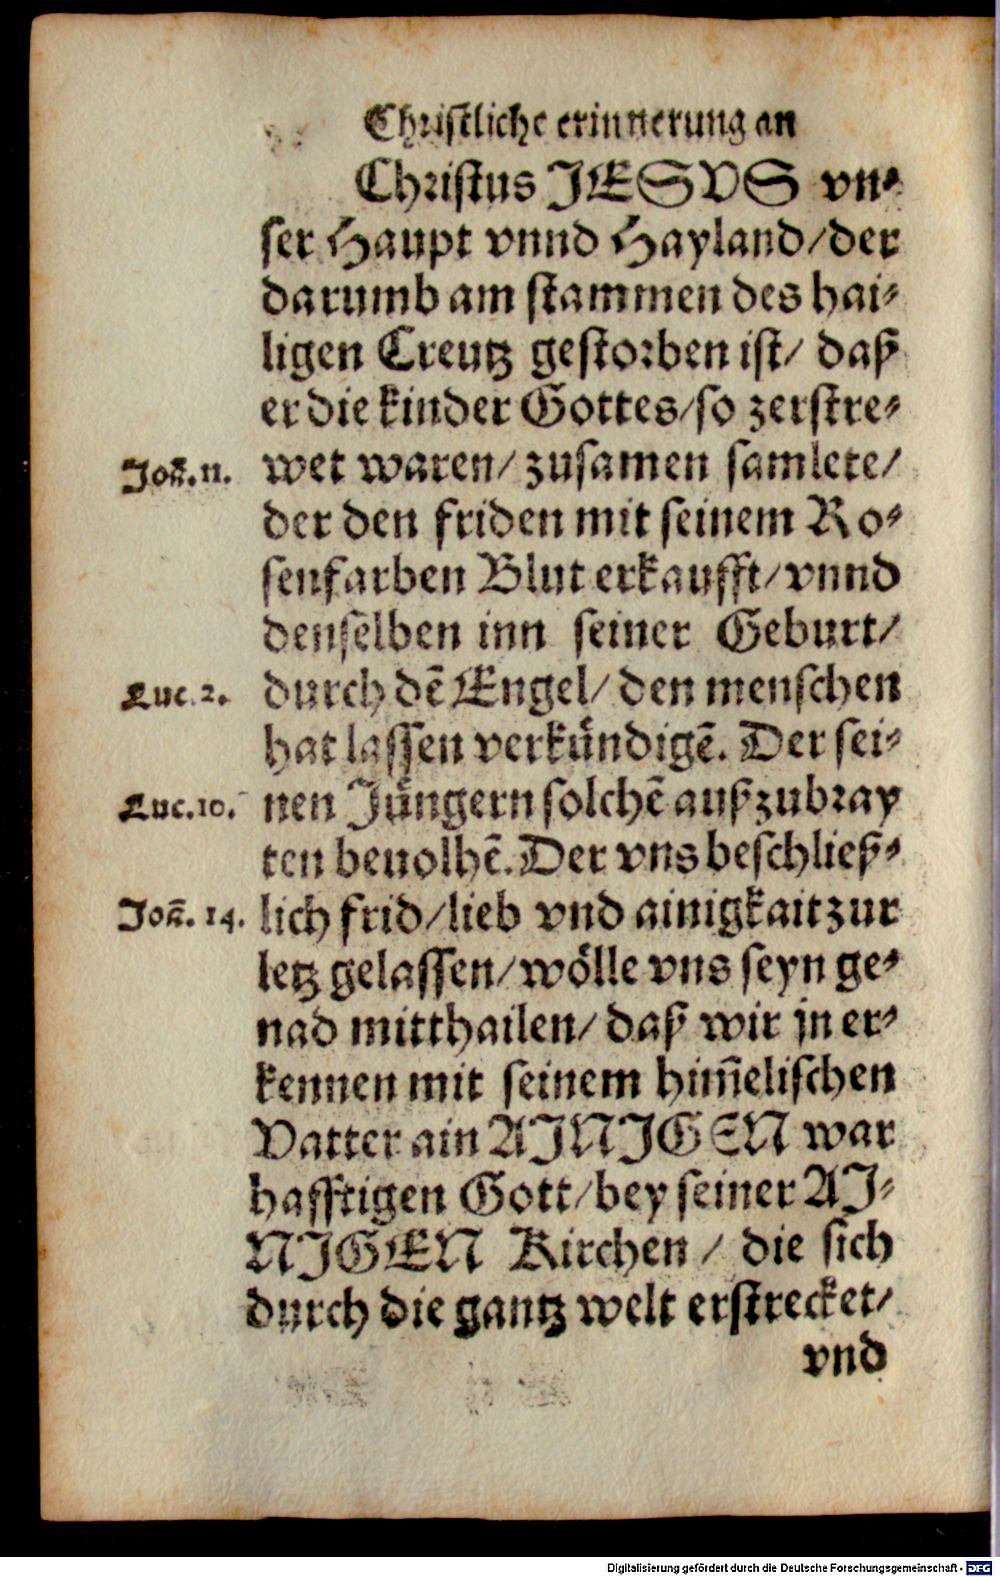 Christliche erinnerung an
Christus JESVS vn⸗
ser Haupt vnnd Hayland/der
darumb am stammen des hai⸗
ligen Creutz gestorben ist/ daß
er die kinder Gottes/so zerstre⸗
Joh̃.11. wet waren/ zusamen samlete/
der den friden mit seinem Ro⸗
senfarben Blut erkaufft/ vnnd
denselben inn seiner Geburt/
Luc.2. durch dẽ Engel/ den menschen
hat lassen verkündigẽ. Der sei⸗
Luc.10. nen Jüngern solchẽ außzubray
ten beuolhẽ. Der vns beschließ⸗
Joh̃. 14. lich frid/lieb vnd ainigkait zur
letz gelassen/ wölle vns seyn ge⸗
nad mitthailen/ daß wir jn er⸗
kennen mit seinem him̃elischen
Vatter ain AINIGEN war
hafftigen Gott/bey seiner AI⸗
NIGEN Kirchen / die sich
durch die gantz welt erstrecket/
vnd
Digitalisierung gefördert durch die Deutsche Forschungsgemeinschaft - DFG